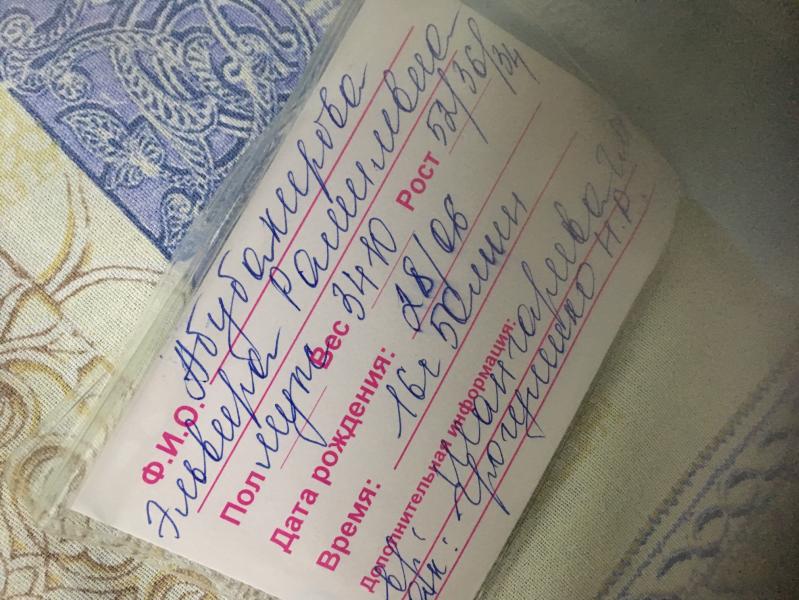 Ф.И.О. Абубакирова
Эльвира Рамилевна
Пол муж Вес 3410 Рост 52/36/34
Дата рождения: 28/06
Время: 16ч 50мин
Дополнительная информация:
вр:
ак: Н.А.